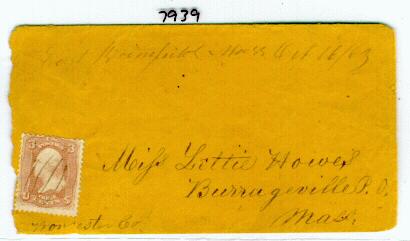 7939
East Brimfield Mass Oct 16/63
3 3
Miss Lettie Howes
Burrageville P.O.
Mass.
Worcester Co.